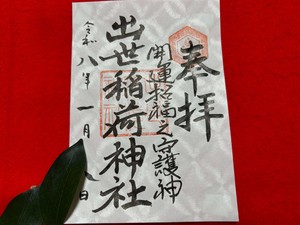 奉拝
開運招福之守護神
出世稲荷神社
令和八年一月 日